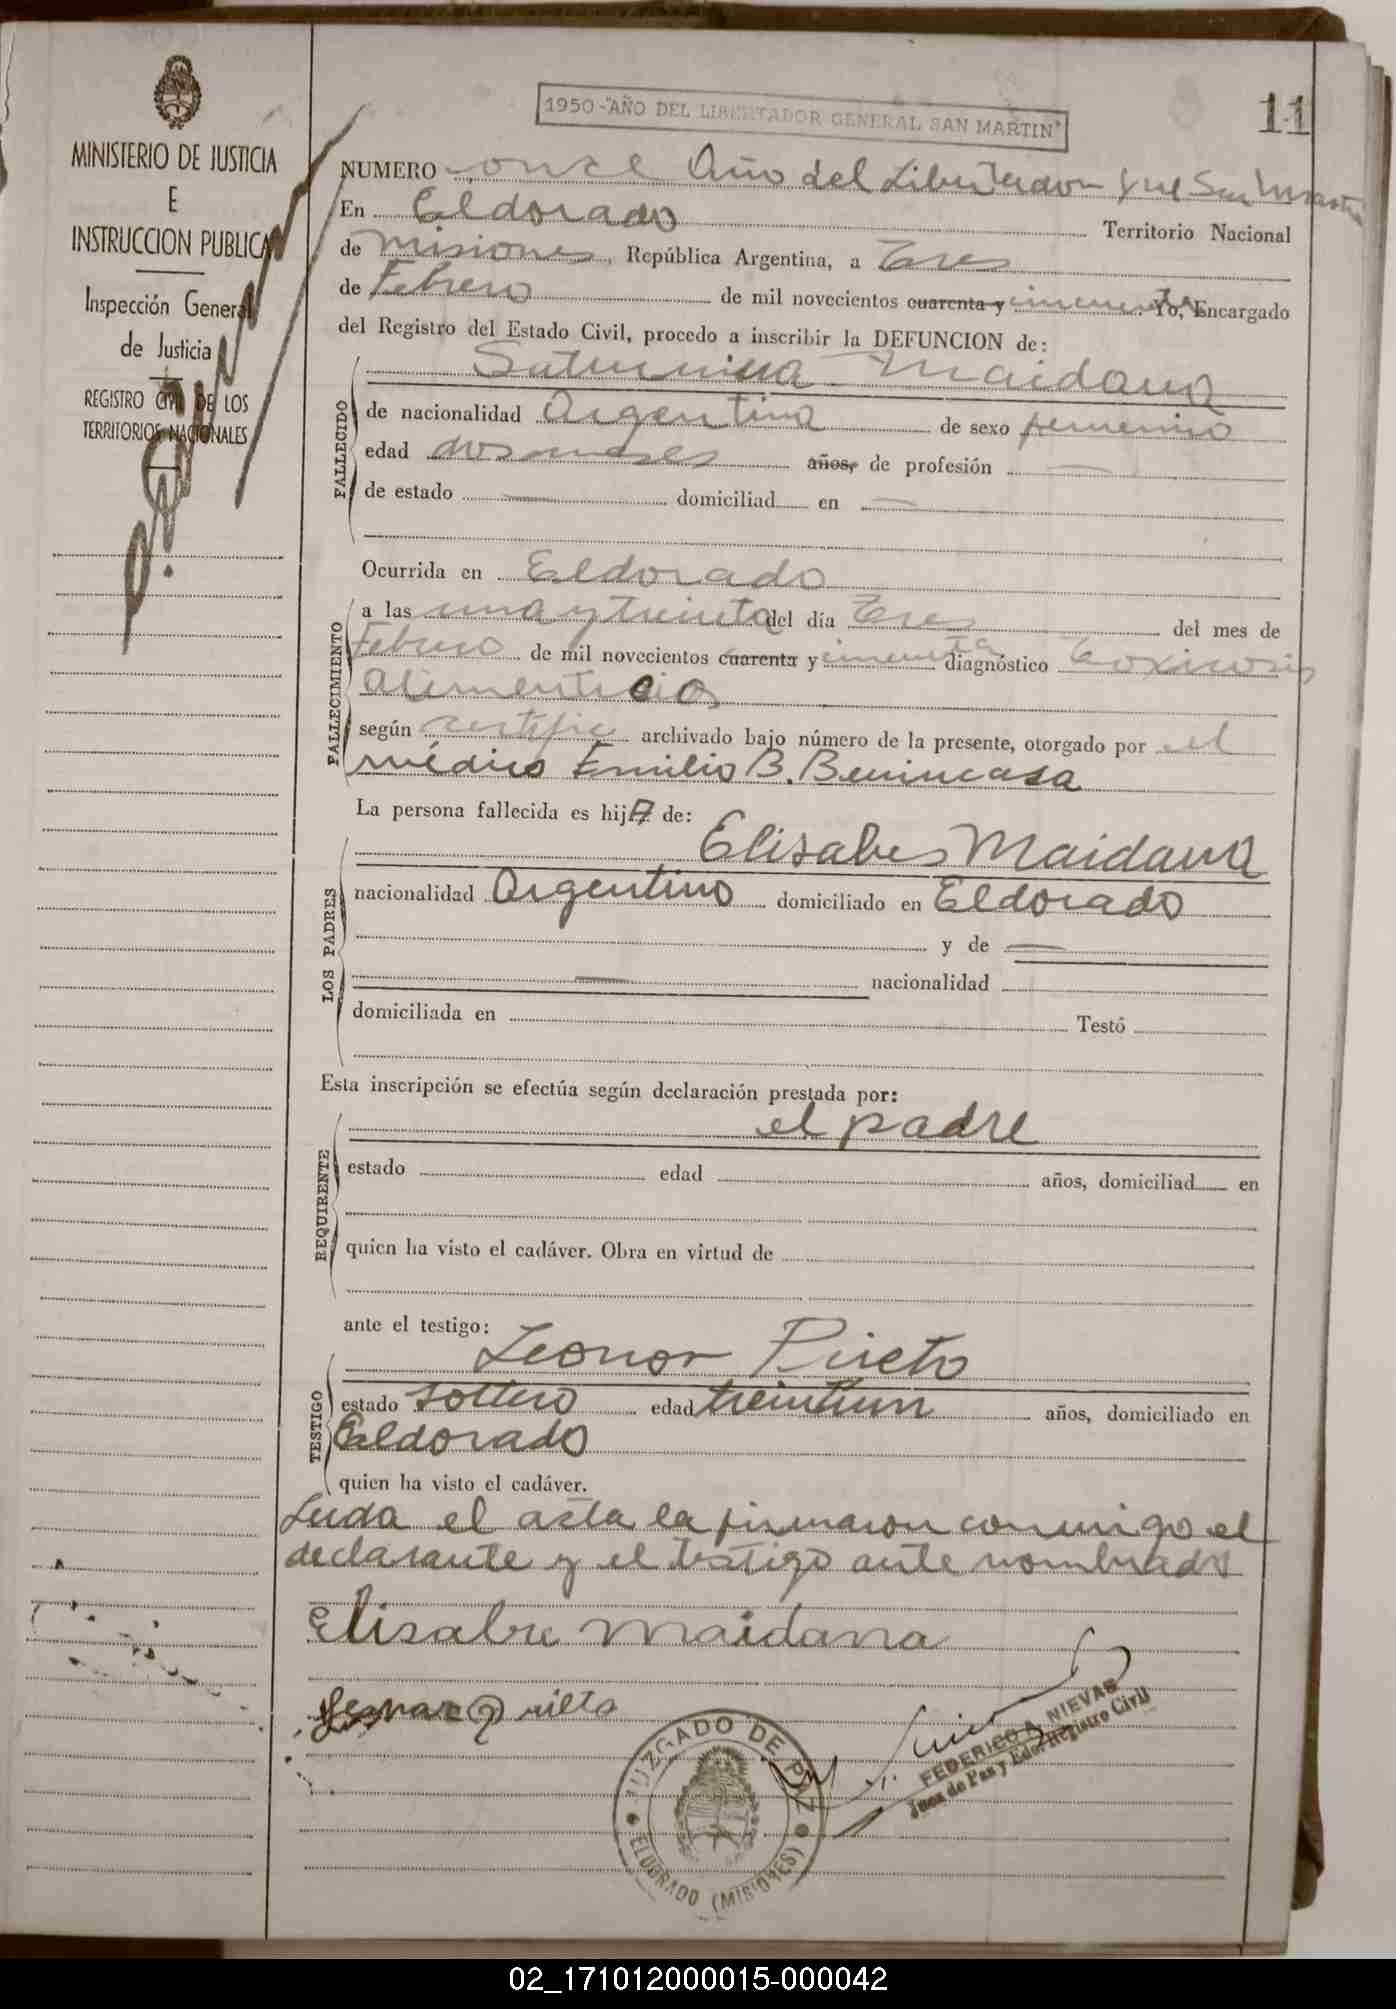 1950-"AÑO DEL LIBERTADOR GENERAL SAN MARTIN"
11
MINISTERIO DE JUSTICIA
E
INSTRUCCION PUBLICA
Inspección General
de Justicia
REGISTRO CIVIL DE LOS
TERRITORIOS NACIONALES
NUMERO once Año del Libertador Gral San Martin
En Eldorado Territorio Nacional
de Misiones, República Argentina, a Tres
de Febrero de mil novecientos cuarenta y cincuenta. Yo, Encargado
del Registro del Estado Civil, procedo a inscribir la DEFUNCION de:
Saturnina Maidana
FALLECIDO
de nacionalidad Argentina de sexo femenino
edad dos meses años, de profesión —
de estado — domiciliad en —
Ocurrida en Eldorado
FALLECIMIENTO
a las una y treinta del día Tres del mes de
Febrero de mil novecientos cuarenta y cincuenta diagnóstico Toxicosis
alimenticia
según certific archivado bajo número de la presente, otorgado por el
médico Emilio B. Benincasa
La persona fallecida es hija de:
Elisabes Maidana
LOS PADRES
nacionalidad Argentino domiciliado en Eldorado
y de —
— nacionalidad
domiciliada en Testó
Esta inscripción se efectúa según declaración prestada por:
el padre
REQUIRENTE
estado edad años, domiciliad en
quien ha visto el cadáver. Obra en virtud de
ante el testigo:
Leonor Prieto
TESTIGO
estado soltero edad treintiun años, domiciliado en
Eldorado
quien ha visto el cadáver.
Leida el acta la firmaron conmigo el
declarante y el testigo ante nombrado
Elisabre maidana
FEDERICO A. NIEVAS
Juez de Paz y Edo. Registro Civil
JUZGADO DE PAZ
ELDORADO (MISIONES)
02_171012000015-000042